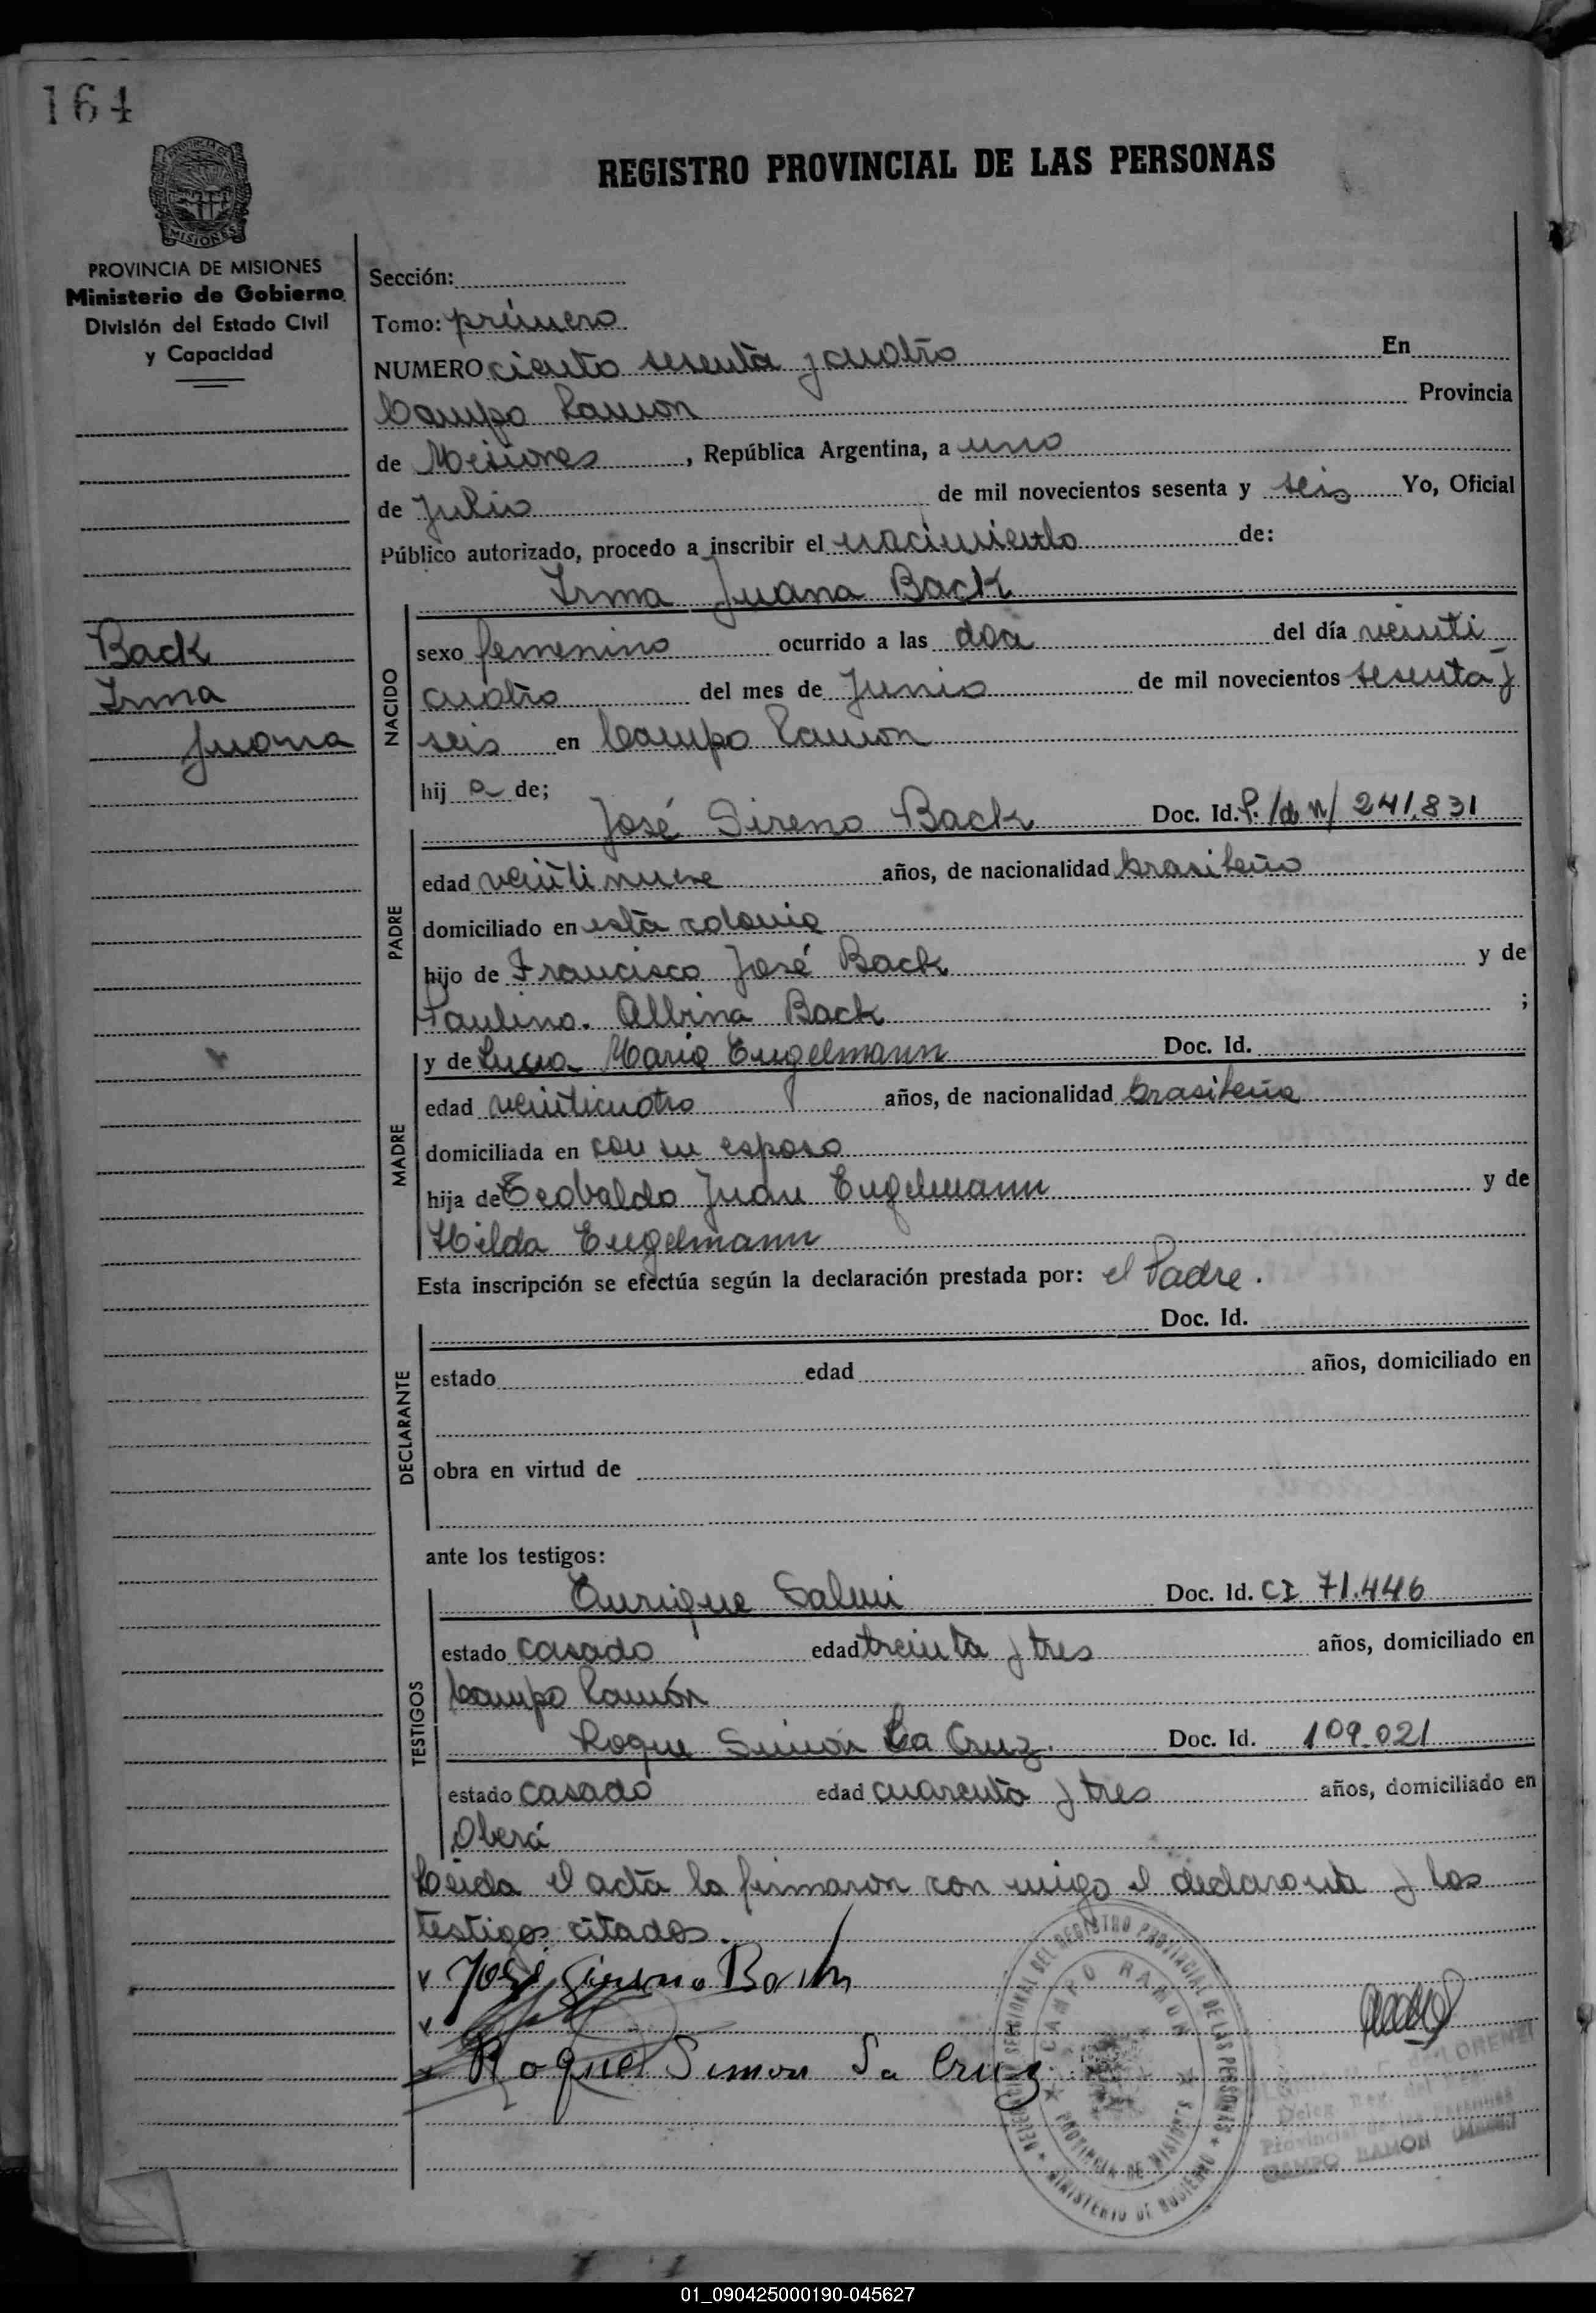 164
REGISTRO PROVINCIAL DE LAS PERSONAS
PROVINCIA DE MISIONES
Ministerio de Gobierno
División del Estado Civil
y Capacidad
Sección:
Tomo: primero
NUMERO ciento sesenta y cuatro En
Campo Ramon Provincia
de Misiones, República Argentina, a uno
de Julio de mil novecientos sesenta y seis Yo, Oficial
Público autorizado, procedo a inscribir el nacimiento de:
Irma Juana Back
Back
Irma
Juana
NACIDO
sexo femenino ocurrido a las doce del día veinti
cuatro del mes de Junio de mil novecientos sesenta y
seis en Campo Ramon
hij a de;
PADRE
José Sireno Back Doc. Id. 241.831
edad veintinueve años, de nacionalidad brasileño
domiciliado en esta colonia
hijo de Francisco José Back y de
Paulina Albina Back ;
MADRE
y de Lucia Maria Engelmann Doc. Id.
edad veinticuatro años, de nacionalidad brasileña
domiciliada en con su esposo
hija de Teobaldo Juan Engelmann y de
Hilda Engelmann
Esta inscripción se efectúa según la declaración prestada por: el Padre.
DECLARANTE
Doc. Id.
estado edad años, domiciliado en
obra en virtud de
ante los testigos:
TESTIGOS
Enrique Salmi Doc. Id. CI 71.446
estado casado edad treinta y tres años, domiciliado en
Campo Ramón
Roque Simón Da Cruz. Doc. Id. 109.021
estado casado edad cuarenta y tres años, domiciliado en
Oberá
Leida el acta la firmaron con migo el declarante y los
testigos citados.
José Sireno Back
Roque Simon Da Cruz
SECCIONAL DEL REGISTRO PROVINCIAL DE LAS PERSONAS
CAMPO RAMON
PROVINCIA DE MISIONES
MINISTERIO DE GOBIERNO
de LORENZI
Deleg. Reg. del
Provincial de las Personas
CAMPO RAMON
01_090425000190-045627